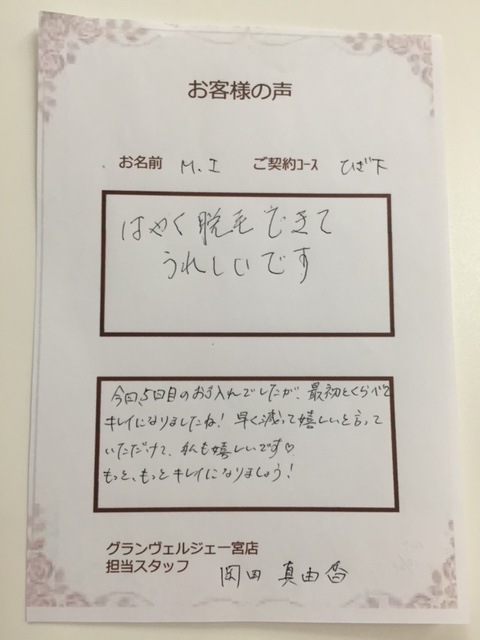 お客様の声
お名前 M.I ご契約コース ひざ下
はやく脱毛できて
うれしいです
今回、5回目のお手入れでしたが、最初とくらべて
キレイになりましたね!早く減って嬉しいと言って
いただけて、私も嬉しいです♡
もっと、もっとキレイになりましょう!
グランヴェルジェ一宮店
担当スタッフ 岡田 真由香